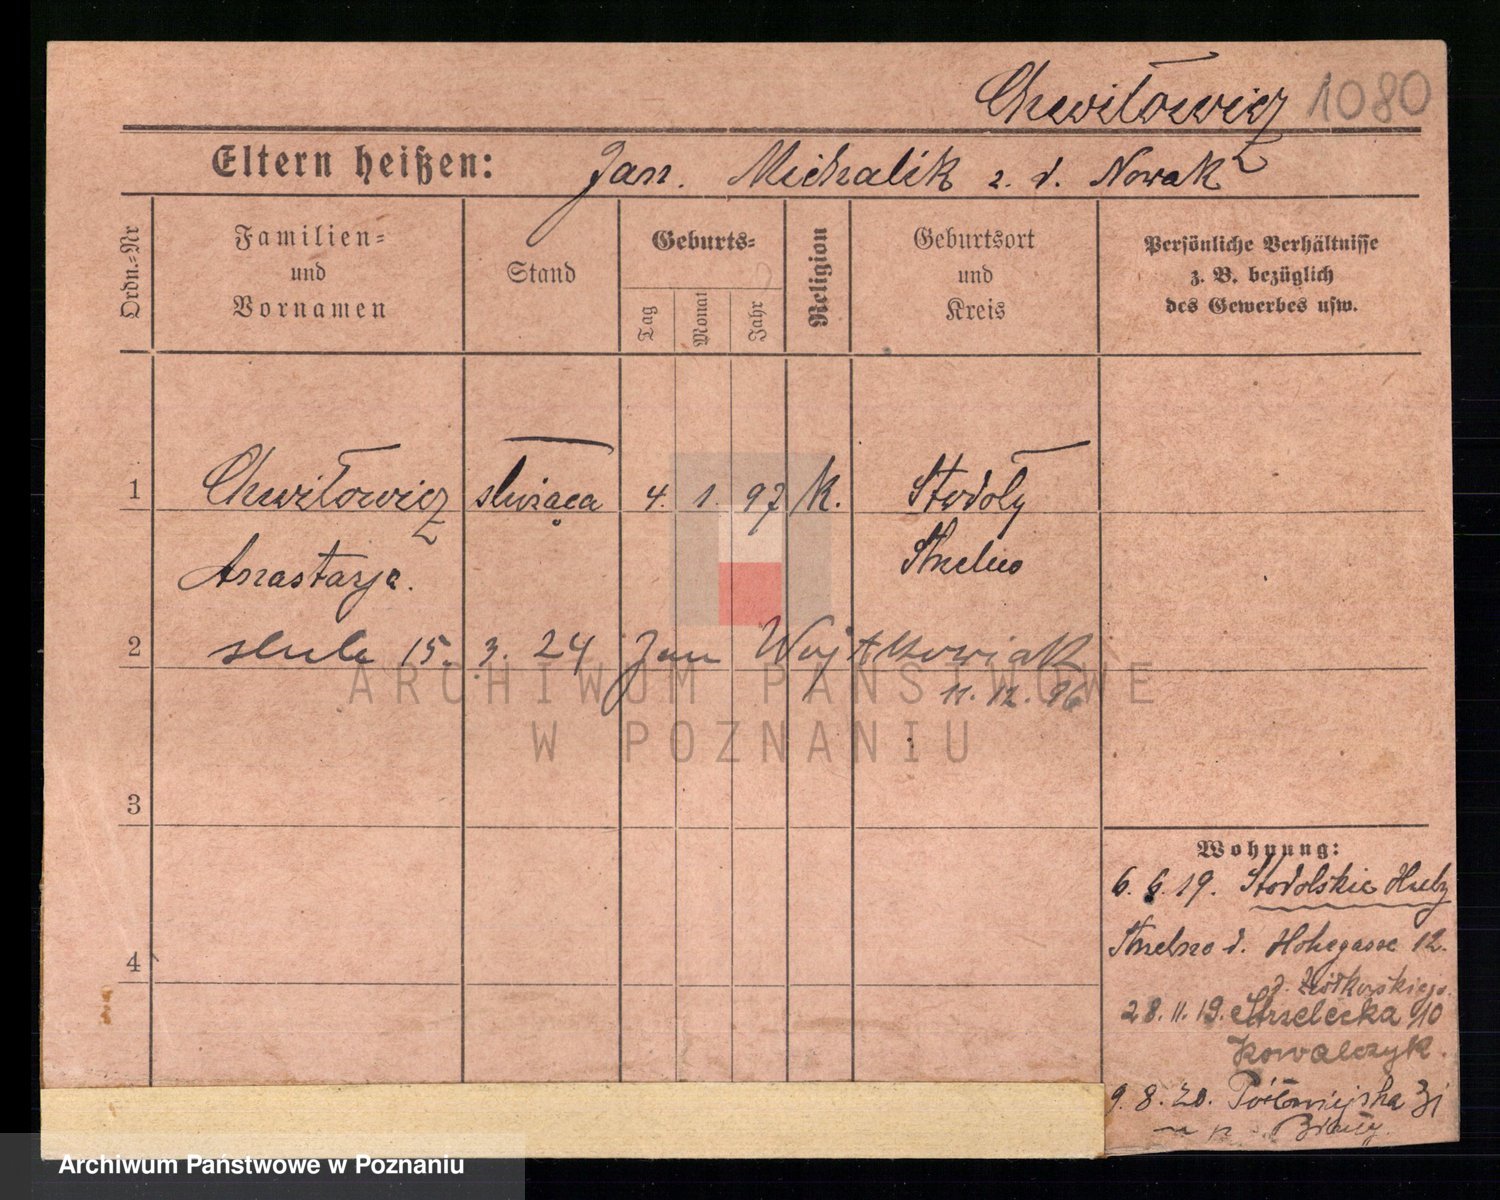 Chwiłowicz 1080
Eltern heißen: Jan. Michalik z. d. Nowak
Ordn.-Nr
Familien=
und
Vornamen
Stand
Geburts=
Tag
Monat
Jahr
Religion
Geburtsort
und
Kreis
Persönliche Verhältnisse
z. B. bezüglich
des Gewerbes usw.
1 Chwiłowicz służąca 4. 1. 97 K. Stodoły
Anastazja. Strzelno
2 15. 3. 24 Jan Wojtkowiak
11. 12. 96
3
4
Wohnung:
6. 6. 19. Stodolskie
Strzelno d. Hohegasse 12.
28. 11. 19. Strzelecka 10
Kowalczyk.
9. 8. 20. Półwiejska 31
u p.
ARCHIWUM PAŃSTWOWE
W POZNANIU
Archiwum Państwowe w Poznaniu